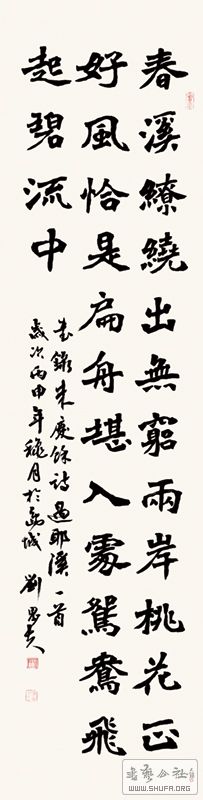 春溪繚繞出無窮兩岸桃花正
好風恰是扁舟堪入處鴛鴦飛
起碧流中
錄朱慶餘詩過耶溪一首
歲次丙申年穐月於城 劉
書藝公社
WWW.SHUFA.ORG